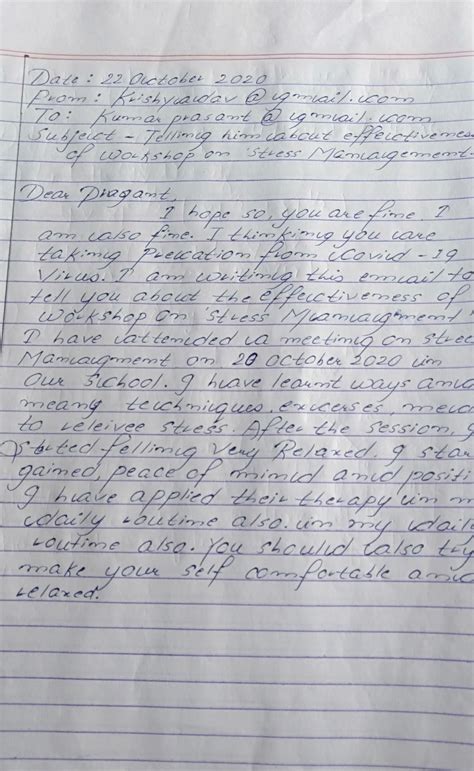 Date : 22 October 2020
From : Krishyadav @ gmail.com
To : Kumar prasant @ gmail.com
Subject - Telling him about effectivenes
of workshop on 'Stress Management.
Dear Prasant,
I hope so, you are fine. I
am also fine. I thinking you are
taking Precation from Covid -19
Virus. I am writing this email to
tell you about the effectiveness of
workshop on 'Stress Management'
I have attended a meeting on stres
Management on 20 October 2020 in
Our School. I have learnt ways and
means techniques, excerses, med
to releivee stress. After the session, I
started felling Very Relaxed. I star
gained, peace of mind and positi
I have applied their therapy in m
daily routine also. in my dail
routine also. You should also try
make your self comfortable and
relaxed.